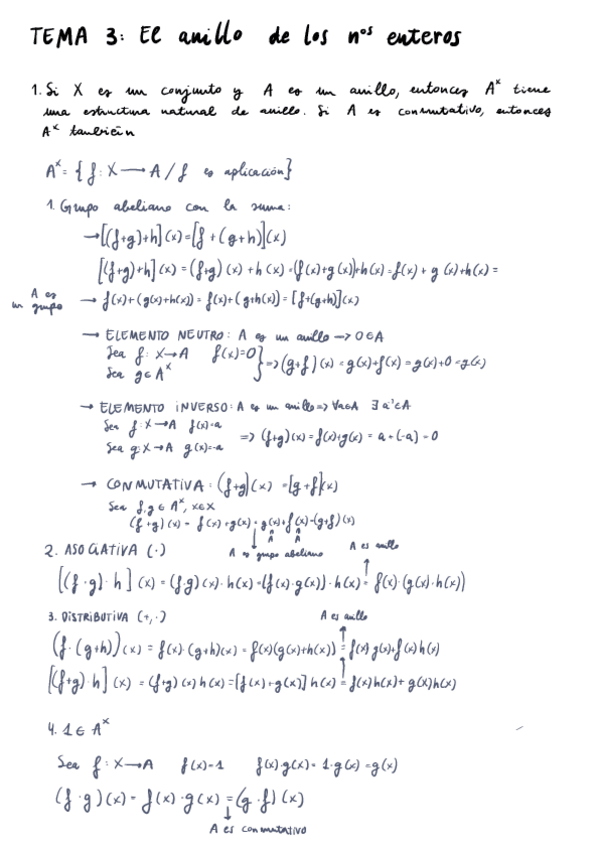 TEMA 3: El anillo de los nos enteros
1. Si X es un conjunto y A es un anillo, entonces Aˣ tiene
una estructura natural de anillo. Si A es conmutativo, entonces
Aˣ también
Aˣ = {f: X → A / f es aplicación}
1. Grupo abeliano con la suma:
→ [(f+g)+h](x) = [f + (g+h)](x)
[(f+g)+h](x) = (f+g)(x) + h(x) = (f(x)+g(x))+h(x) = f(x) + g(x)+h(x) =
A es un grupo → f(x)+(g(x)+h(x)) = f(x)+(g+h(x)) = [f+(g+h)](x)
→ ELEMENTO NEUTRO: A es un anillo → 0∈A
Sea f: X→A f(x)=0
Sea g∈Aˣ } => (g+f)(x) = g(x)+f(x) = g(x)+0 = g(x)
→ ELEMENTO INVERSO: A es un anillo => ∀a∈A ∃a'∈A
Sea f: X→A f(x)=a
Sea g: X→A g(x)=-a => (f+g)(x) = f(x)+g(x) = a+(-a) = 0
→ CONMUTATIVA: (f+g)(x) = [g+f](x)
Sea f,g ∈ Aˣ, x∈X
(f+g)(x) = f(x)+g(x) = g(x)+f(x) = (g+f)(x)
A A
A es grupo abeliano
2. ASOCIATIVA (·)
A es anillo
[(f·g)·h](x) = (f·g)(x)·h(x) = (f(x)·g(x))·h(x) = f(x)·(g(x)·h(x))
3. DISTRIBUTIVA (+,·)
A es anillo
(f·(g+h))(x) = f(x)·(g+h)(x) = f(x)(g(x)+h(x)) = f(x)g(x)+f(x)h(x)
[(f+g)·h](x) = (f+g)(x)h(x) = [f(x)+g(x)]h(x) = f(x)h(x)+g(x)h(x)
4. 1∈Aˣ
Sea f: X→A f(x)=1 f(x)·g(x) = 1·g(x) = g(x)
(f·g)(x) = f(x)·g(x) = (g·f)(x)
A es conmutativo